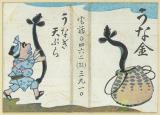 うな金
電話〇四六六(22)三九一〇
うなぎ
天ぷら